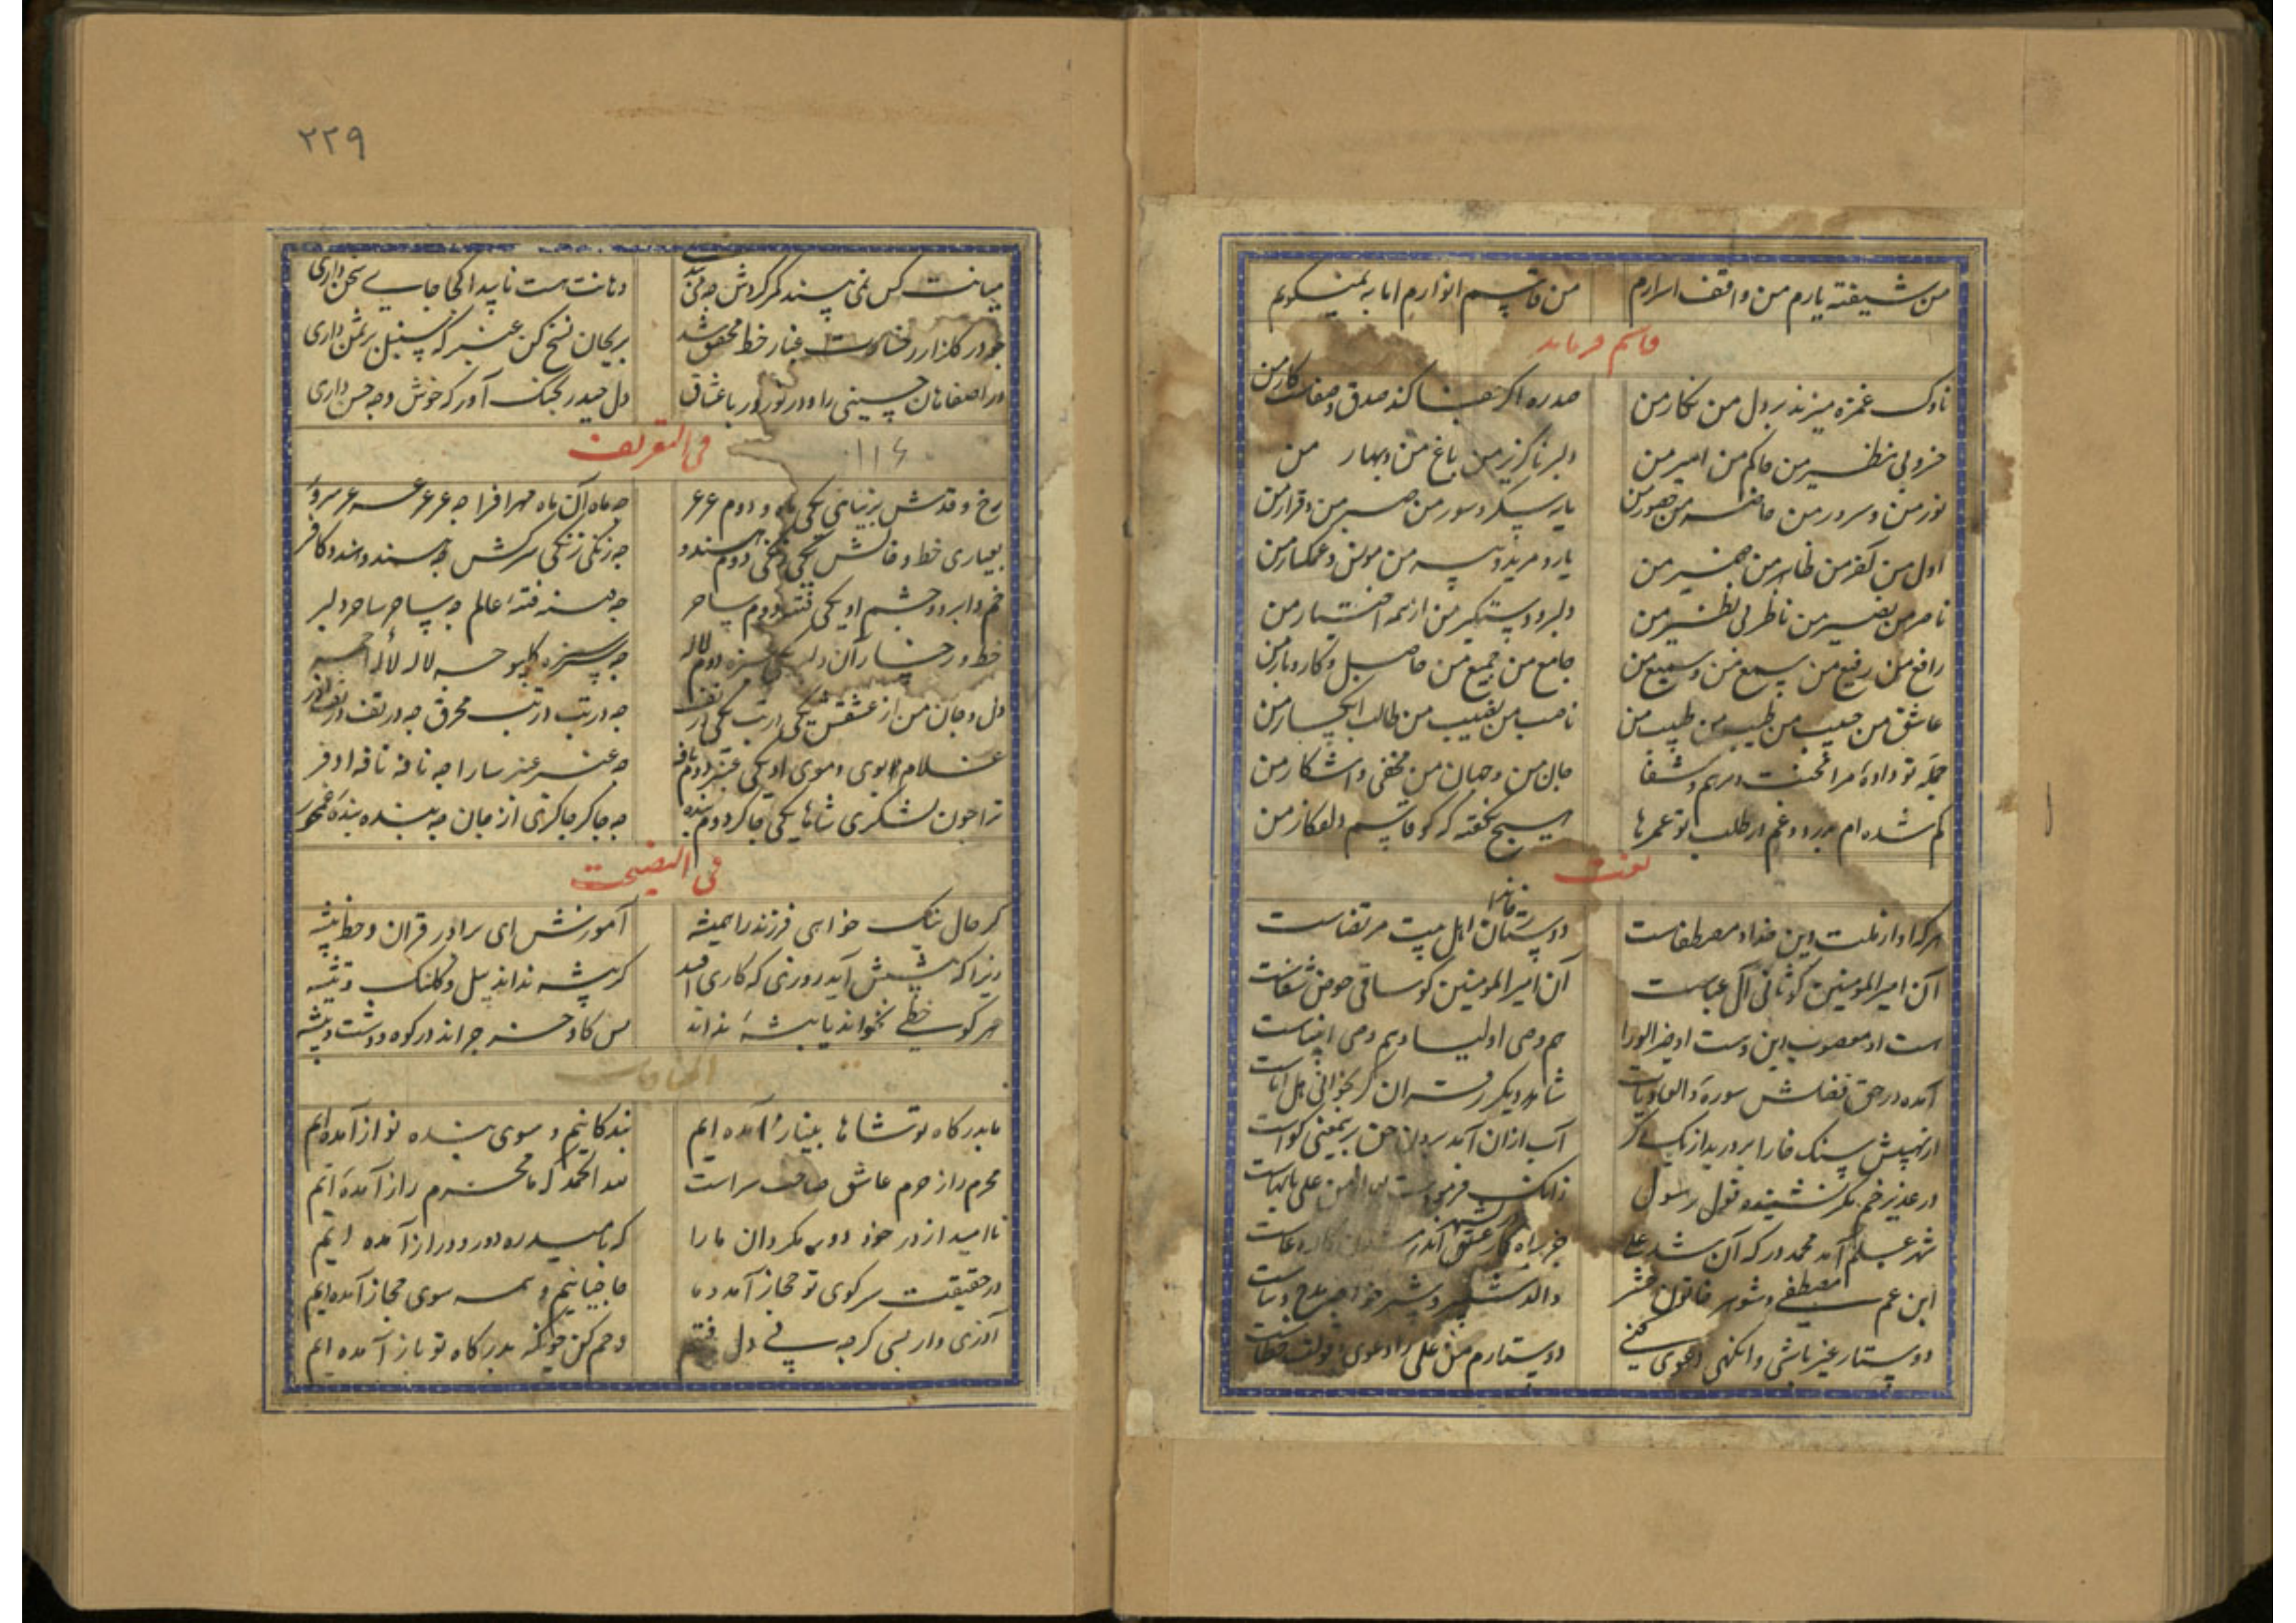 من شیفته یارم من واقف اسرارم من قاسم انوارم اما به نمیگویم
قاسم فرماید
ناوک غمزه میزند بر دل من نگار من صدره اگر جفا کند صدق و صفاست کار من
خسرو بی نظیر من حاکم من امیر من دلبر ناگزیر من باغ من و بهار من
نور من و سرور من حاضر من حضور من من صبر من و قرار من
اول من آخر من ظاهر من ضمیر من یار و مرید و پیر من مونس و غمگسار من
ناصر من نصیر من ناظر بی نظیر من دلبر و دستگیر من از همه اختیار من
رافع من رفیع من سمع من و سمیع من جامع من جمیع من حاصل و کار و بار من
عاشق من حبیب من طیب من طبیب من ناصب من نصیب من طالب من
جمله تو داده مرا محنت و مرهم و شفا جان من و جهان من مخفی و آشکار من
گم شده ام بدرد و غم در طلب تو عمرها هیچ نگفته که کو قاسم دلفکار من
نعت
هر که او از ملت دین خدا و مصطفاست دوستان اهل بیت مرتضاست
آن امیر المومنین که ثانی آل عباست آن امیر المومنین کو ساقی حوض شفاست
هست او این وست او خیر الورا هم وصی اولیا و هم وصی انبیاست
آمده در حق فضلش سوره والعادیات شاهد دیگر ز قران گر بخوانی هل اتاست
از نهیبش سنگ خارا بر درید از یک دگر آب ازان آمد برون حق برین معنی گواست
در غدیر خم مگر نشنیده قول رسول
شهر علم آمد محمد در که آن شد علی
ابن عم مصطفی و شوهر خاتون حشر والد شبیر و شبر
دوستار غیر باشی وانگهی دعوی کنی دوستارم من علی را دعوی
۲۲۹
میانت کس نمی بیند مگر گردش دهانت هست ناپیدا کجا جای سخن داری
چو در گلزار رخسارت غبار خط محقق شد بریحان نسخ کن عنبر که سنبل بر سمن داری
در اصفاهان حسینی را و در نوروز با عشاق دل حیدر بچنگ آور که خوش وجه حسن داری
فی التعریف
۱۱۴
رخ و قدش بزیبایی یکی ماه و دوم عرعر چه ماه آن ماه مهر افزا چه عرعر عرعر
بعیاری خط و خالش یکی زنگی دوم هندو چه زنگی زنگی سرکش چه هندو هندو کافر
خم ابرو و چشم او یکی فتنه دوم ساحر چه فتنه فتنه عالم چه ساحر ساحر دلبر
خط و رخسار آن دلبر یکی سبزه دوم لاله چه سبزه چه لاله لاله احمر
دل و جان من از عشقش یکی در تب یکی در تف چه در تب در تب محرق چه در تف در تف
غلام بوی و موی او یکی عنبر دوم نافه چه عنبر عنبر سارا چه نافه نافه اذفر
ترا چون لشکری شاها یکی چاکر دوم بنده چه چاکر چاکری از جان چه بنده بنده
فی النصیحت
گر حال نیک خواهی فرزند را همیشه آموزش ای برادر قران و خط پیشه
زیرا که پیشش آید روزی که کاری افتد گر پیشه نداند بیل و کلنک و تیشه
هر کو خطی نخواند یا پیشه نداند بس کاو و خر چراند در کوه و دشت و بیشه
المناجات
ما بدرگاه تو شاها بنیاز آمده ایم بندگانیم و سوی بنده نواز آمده ایم
محرم راز حرم عاشق صاحب سر است لله الحمد که ما محرم راز آمده ایم
ناامید از در خود دور مگردان ما را که بامید ره دور و دراز آمده ایم
در حقیقت سر کوی تو حجاز آمد و ما حاجیانیم و همه سوی حجاز آمده ایم
آذری وار بسی گر چه پی دل رفتم رحم کن بدرگاه تو باز آمده ایم